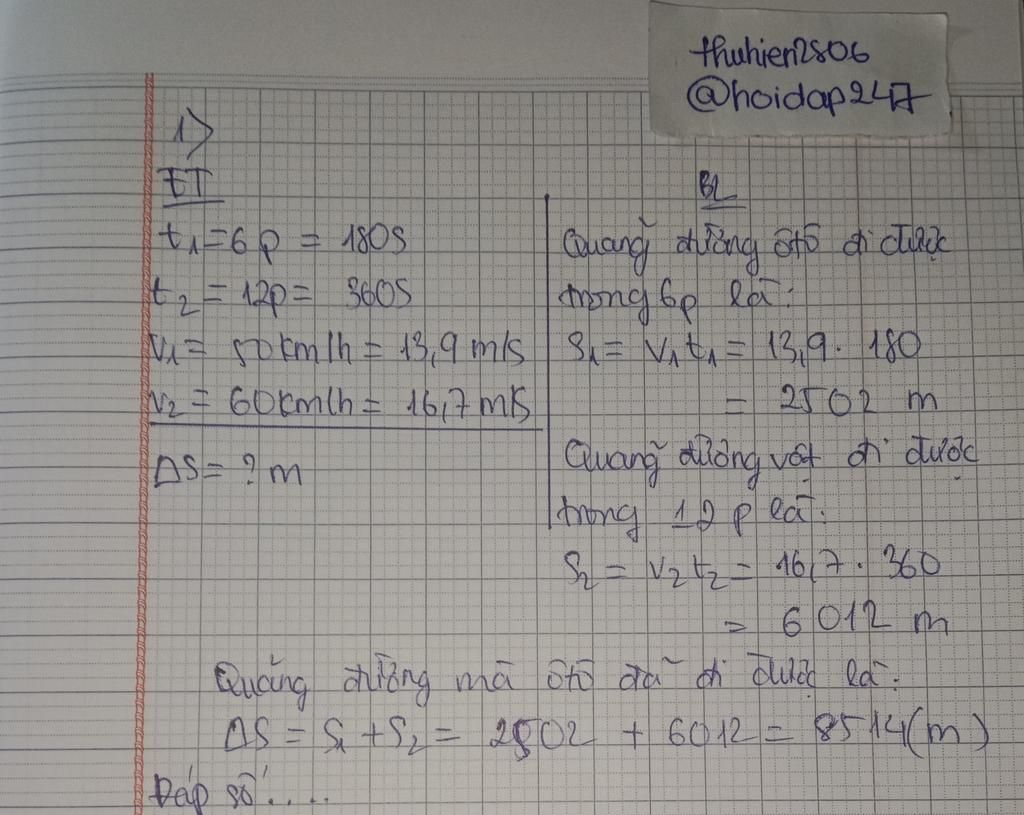 thuhien2806
@hoidap247
1>
TT
t₁ = 6p = 180S
t₂ = 12p = 360S
V₁ = 50km/h = 13,9 m/s
V₂ = 60km/h = 16,7 m/s
ΔS = ? m
BL
Quãng đường ôtô đi được
trong 6p là:
S₁ = V₁t₁ = 13,9 . 180
= 2502 m
Quãng đường vật đi được
trong 12 p là:
S₂ = V₂t₂ = 16,7 . 360
= 6012 m
Quãng đường mà ôtô đã đi được là:
ΔS = S₁ + S₂ = 2502 + 6012 = 8514 (m)
Đáp số .....